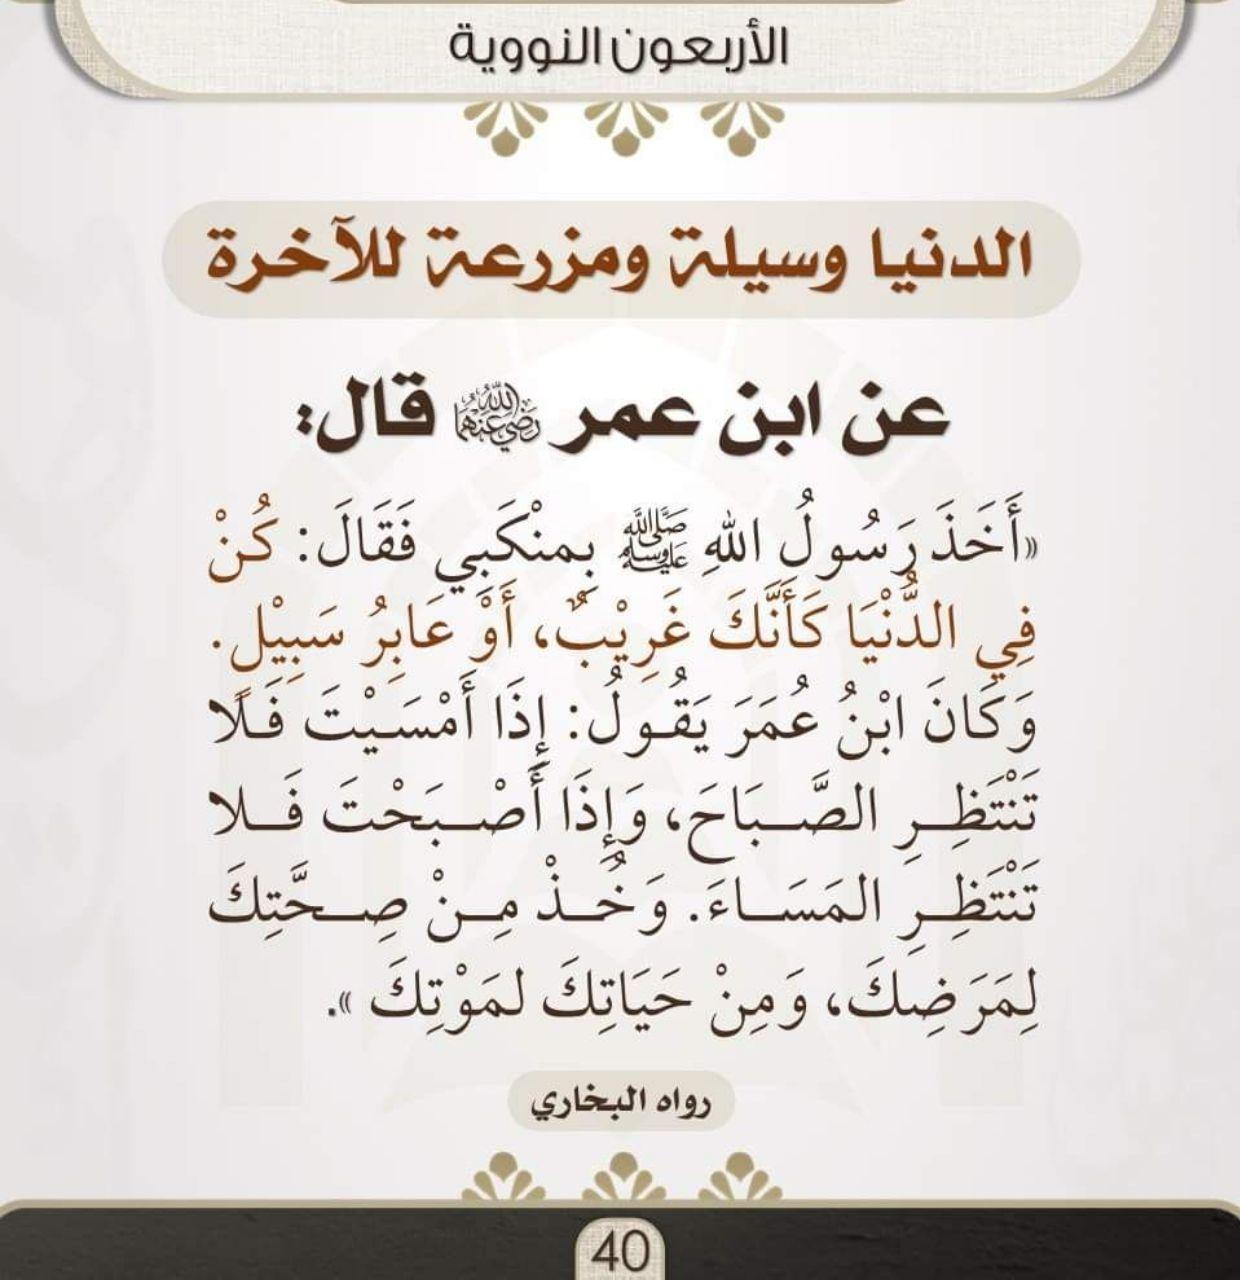 الأربعون النووية
الدنيا وسيلة ومزرعة للآخرة
عن ابن عمر رَضِيَ اللَّهُ عَنْهُمَا قال:
«أَخَذَ رَسُولُ اللهِ ﷺ بِمنْكَبِي فَقَالَ: كُنْ
فِي الدُّنْيَا كَأَنَّكَ غَرِيْبٌ، أَوْ عَابِرُ سَبِيْلٍ.
وَكَانَ ابْنُ عُمَرَ يَقُولُ: إِذَا أَمْسَيْتَ فَلَا
تَنْتَظِرِ الصَّبَاحَ، وَإِذَا أَصْبَحْتَ فَلا
تَنْتَظِرِ المَسَاءَ. وَخُذْ مِنْ صِحَّتِكَ
لِمَرَضِكَ، وَمِنْ حَيَاتِكَ لمَوْتِكَ».
رواه البخاري
40